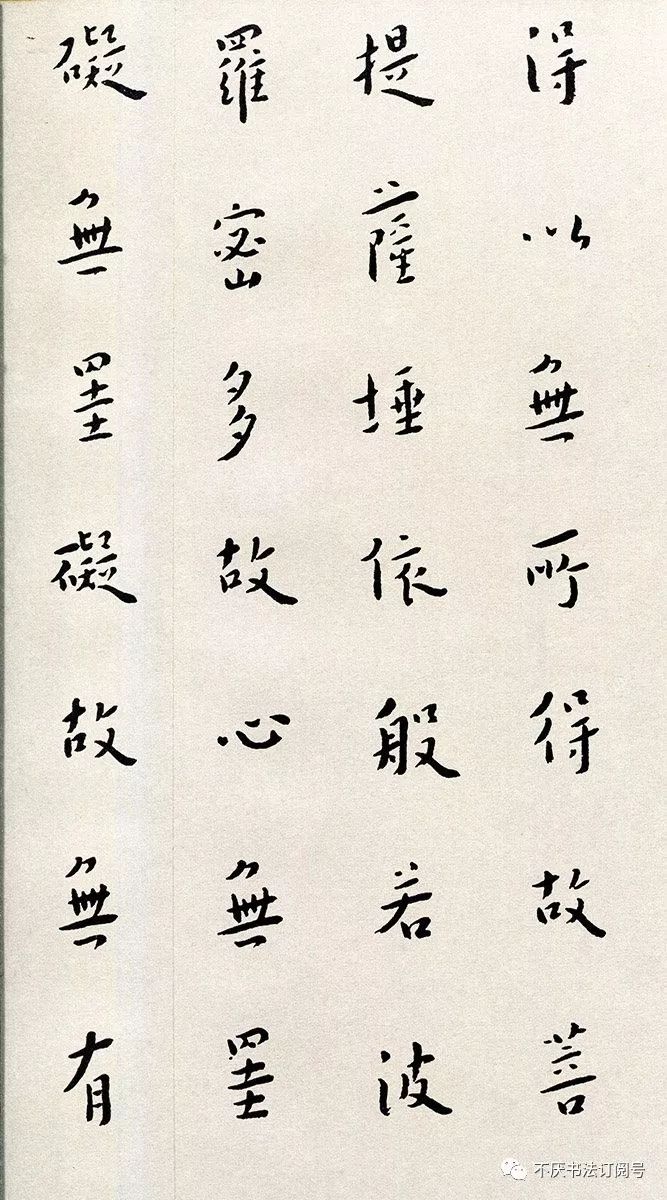 得以無所得故菩
提薩埵依般若波
羅蜜多故心無罣
礙無罣礙故無有
不厌书法订阅号